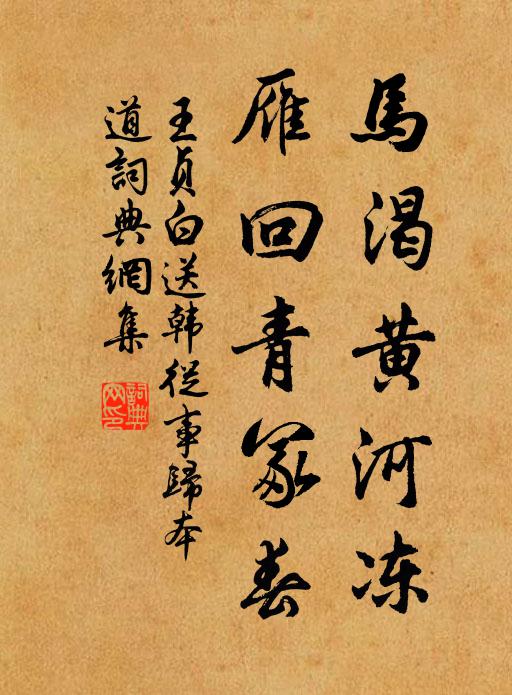 馬渴黄河冻
雁回青冢春
王貞白送韩從事歸本
道詞典網集
詞典
网印